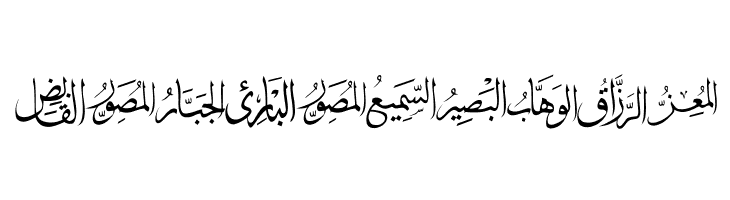 المُعِزُّ الرَّزَّاقُ الوَهَّابُ البَصِيرُ السَّمِيعُ المُصَوِّرُ البَارِئُ الجَبَّارُ المُصَوِّرُ القَابِضُ